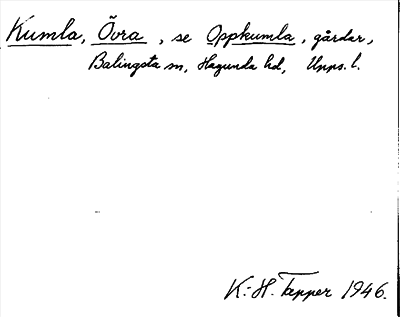 Kumla, Övra, se Oppkumla, gårdar,
Balingsta sn, Hagunda hd, Upps. l.
K.-H. Tepper 1946.